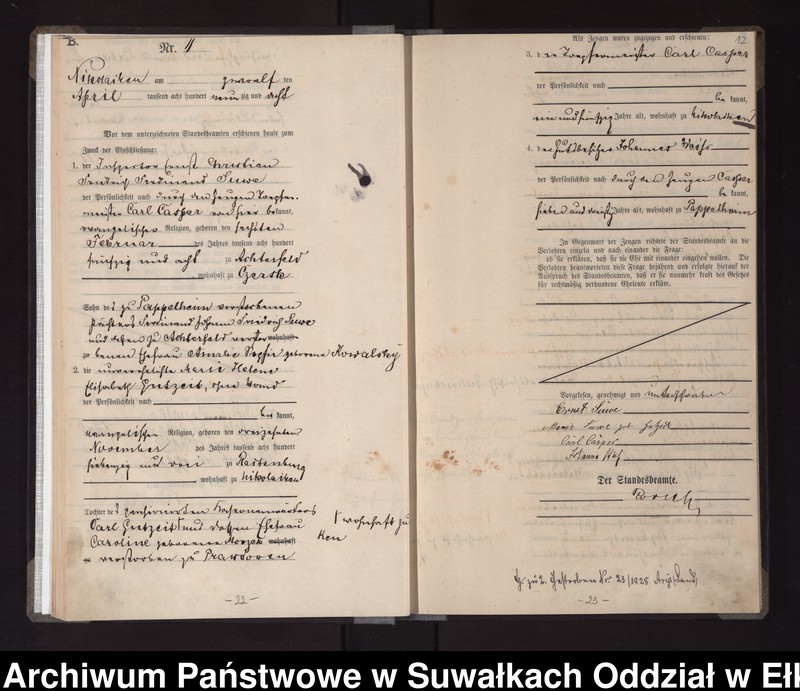 B.
Nr. 11
Nikolaiken am zwoelf ten
April tausend acht hundert neunzig und acht
Vor dem unterzeichneten Standesbeamten erschienen heute zum
Zweck der Eheschließung:
1. der Inspector Ernst Christian
Friedrich Ferdinand Suwe
der Persönlichkeit nach durch den Zeugen Toepfer-
meister Carl Casper von hier bekannt,
evangelischer Religion, geboren den sechsten
Februar des Jahres tausend acht hundert
fünfzig und acht zu Achterfeld
, wohnhaft zu Czersk
Sohn des zu Pappelheim verstorbenen
Ferdinand Johann Friedrich Suwe
und dessen zu Achterfeld verstor- wohnhaft
zu benen Ehefrau Amalie Sophie geborene Kowalsky
2. die unverehelichte Marie Helene
Elisabeth Gutzeit, ohne Stand
der Persönlichkeit nach
be kannt,
evangelischer Religion, geboren den dreizehnten
November des Jahres tausend acht hundert
siebenzig und vier zu Rastenburg
, wohnhaft zu Nikolaiken
Tochter des pensionirten
Carl Gutzeit und dessen Ehefrau
Caroline geborene wohnhaft
verstorben zu Prawdowen
wohnhaft zu
- 22 -
12
Als Zeugen waren zugezogen und erschienen:
3. der Toepfermeister Carl Casper
der Persönlichkeit nach
be kannt,
ein und fünfzig Jahre alt, wohnhaft zu Nikolaiken
4. der Gutsbesitzer Johannes
der Persönlichkeit nach durch den Zeugen Casper
be kannt,
sieben und Jahre alt, wohnhaft zu Pappelheim
In Gegenwart der Zeugen richtete der Standesbeamte an die
Verlobten einzeln und nach einander die Frage:
ob sie erklären, daß sie die Ehe mit einander eingehen wollen. Die
Verlobten beantworteten diese Frage bejahend und erfolgte hierauf der
Ausspruch des Standesbeamten, daß er sie nunmehr kraft des Gesetzes
für rechtmäßig verbundene Eheleute erkläre.
Vorgelesen, genehmigt und unterschrieben
Ernst Suwe
Marie Suwe geb. Gutzeit
Carl Casper
Johannes
Der Standesbeamte.
Gestorben Nr. 23/1925
- 23 -
Archiwum Państwowe w Suwałkach Oddział w Eł